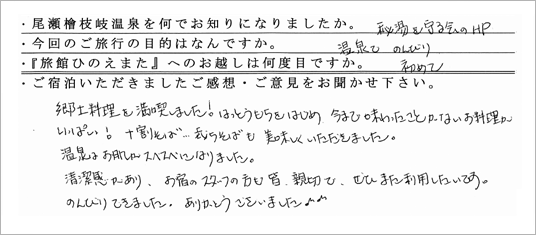 ・尾瀬檜枝岐温泉を何でお知りになりましたか。 秘湯を守る会のHP
・今回のご旅行の目的はなんですか。 温泉でのんびり
・『旅館ひのえまた』へのお越しは何度目ですか。 初めて
・ご宿泊いただきましたご感想・ご意見をお聞かせ下さい。
郷土料理を満喫しました！はっとうもちをはじめ、今まで味わったことがないお料理が
いっぱい！ 十割そば…裁ちそばも美味しくいただきました。
温泉はお肌がスベスベになりました。
清潔感があり、お宿のスタッフの方も皆、親切で、ぜひまた利用したいです。
のんびりできました。ありがとうございました♪♪